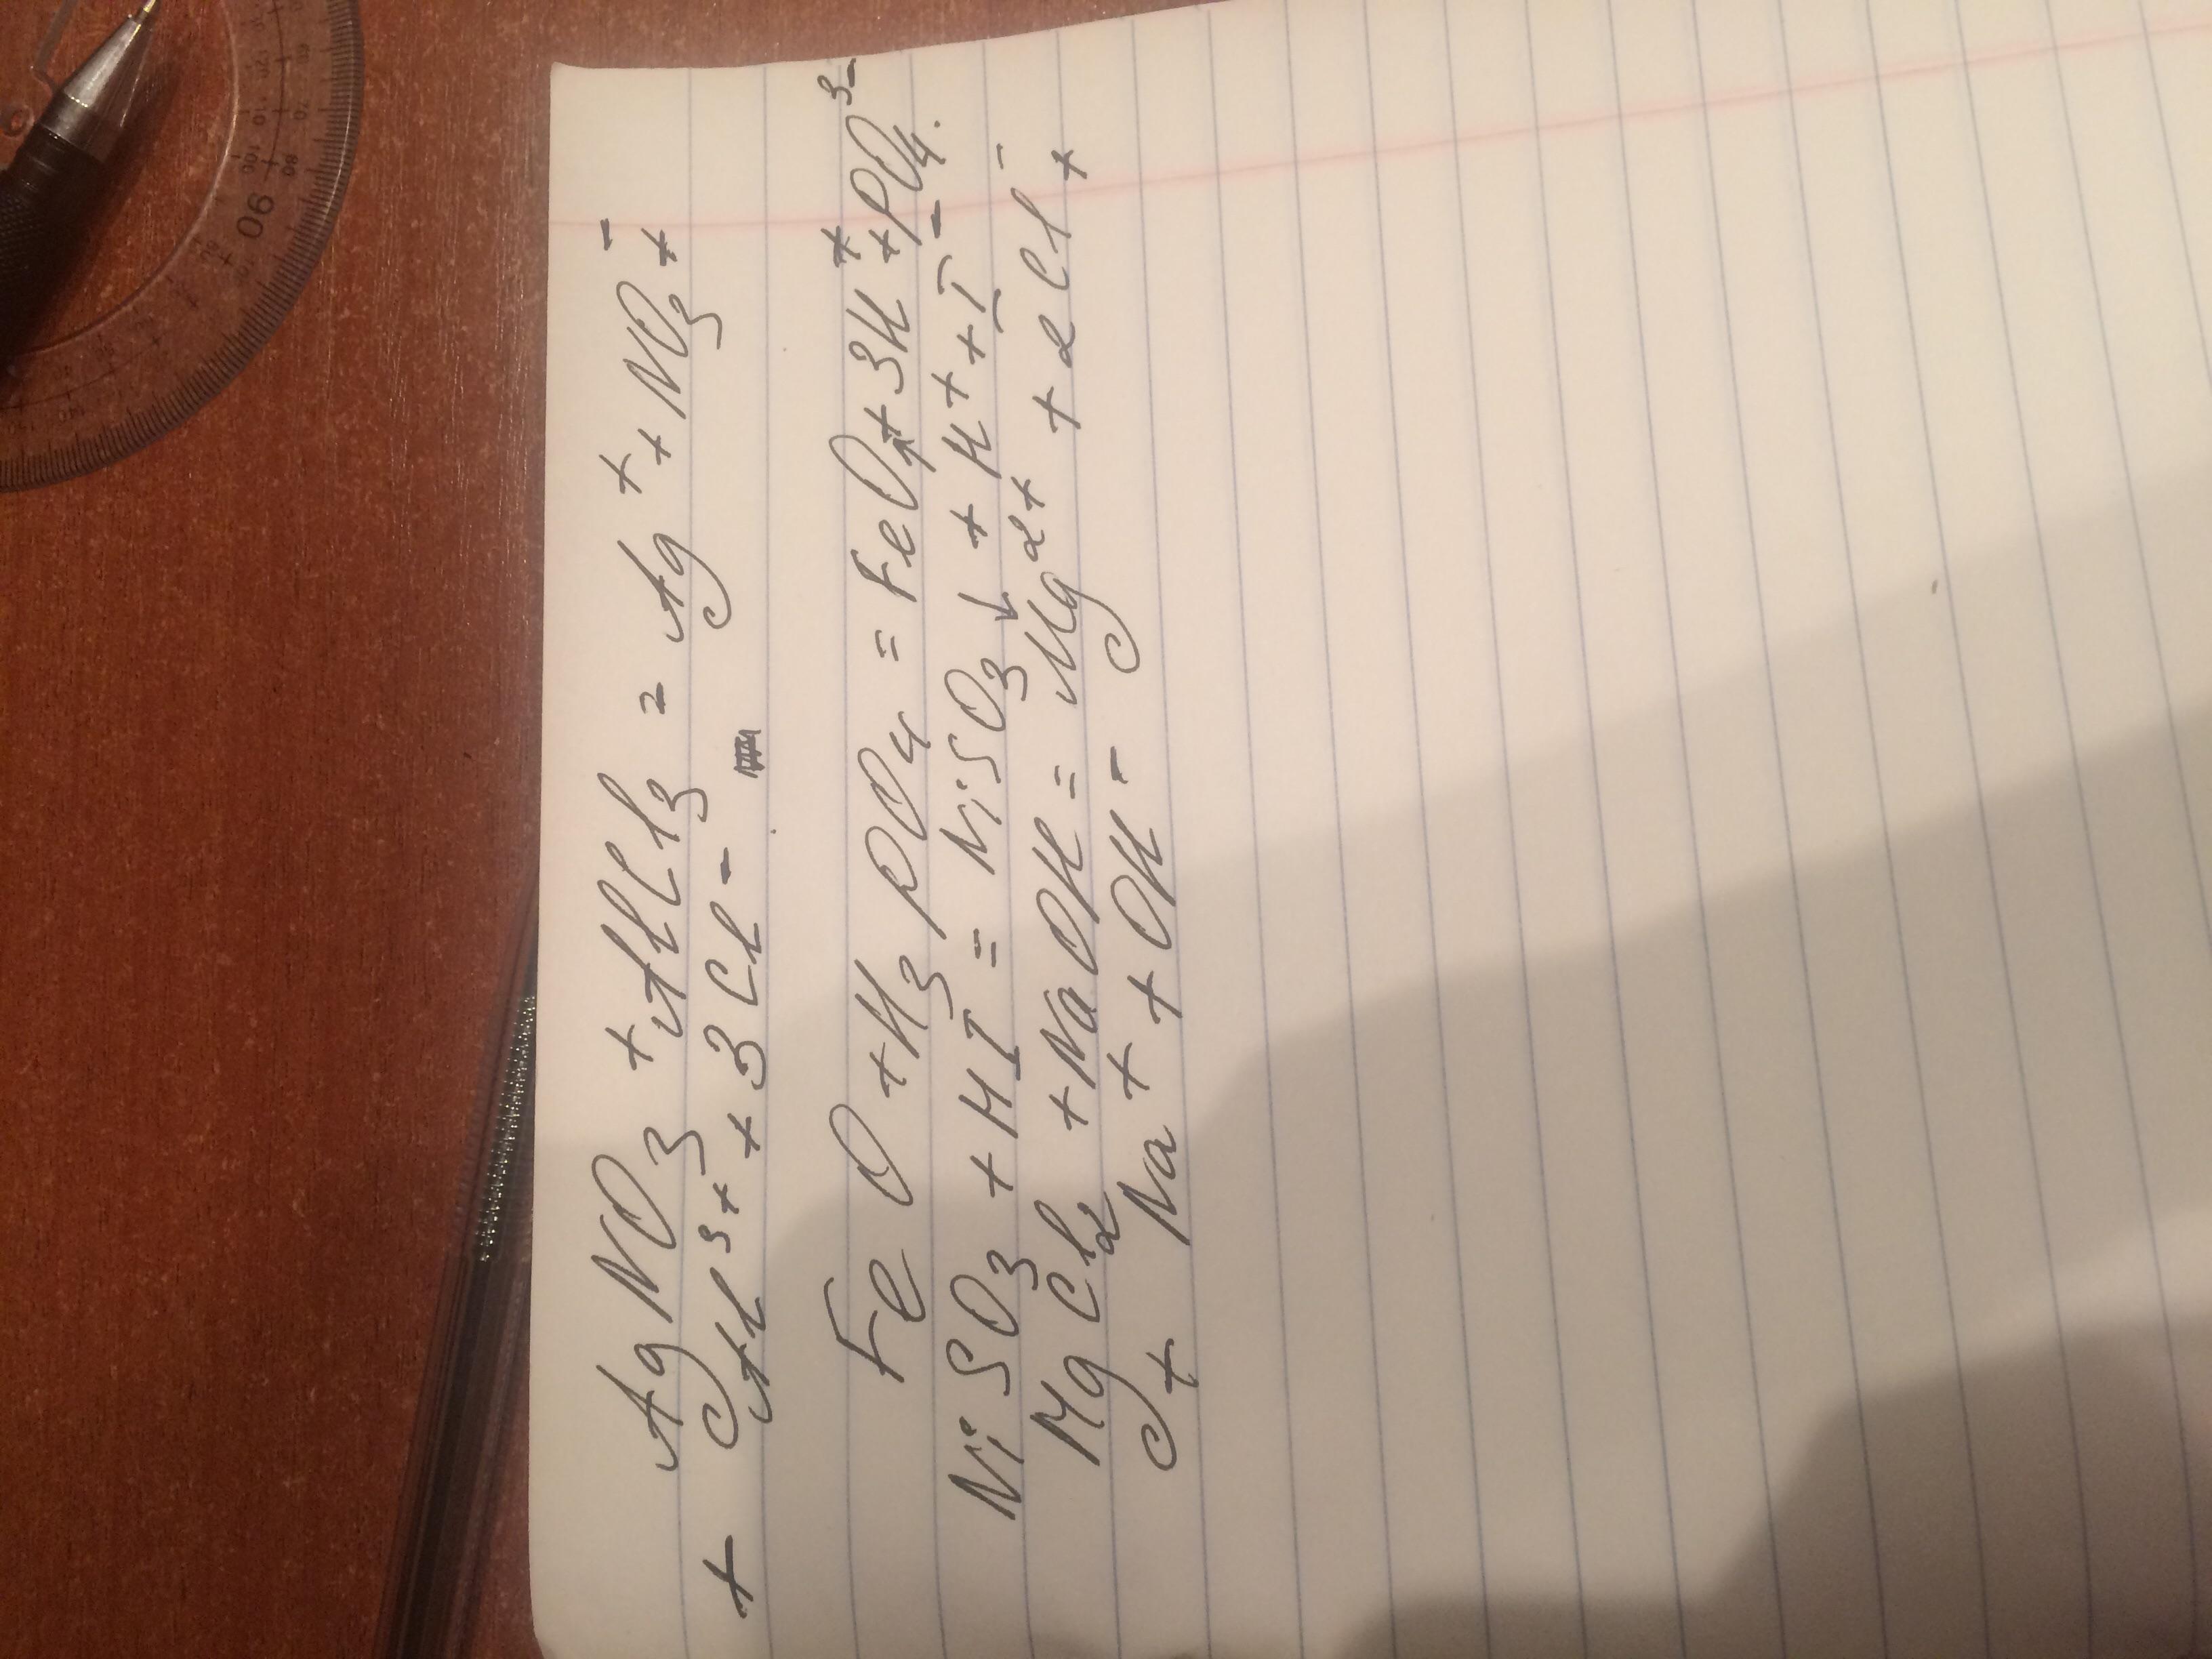 AgNO3 + AlCl3 = Ag+ + NO3- +
+ Al3+ + 3Cl-
FeO + H3PO4 = FeO↓ + 3H+ + PO4 3-
NiSO3 + HI = NiSO3↓ + H+ + I-
MgCl2 + NaOH = Mg2+ + 2Cl- +
+ Na+ + OH-
90